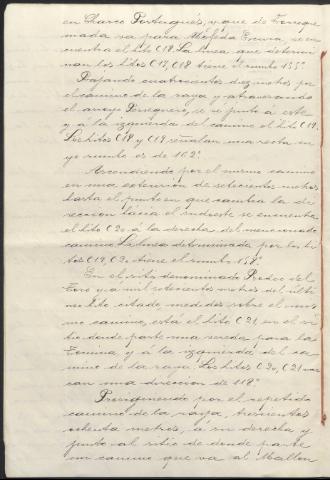 en Charco Portugués, y que de Torreque
mada va para Aldefda Ervia, se en
cuentra el hito C 18. La linea que determi
nan los hitos C 17, C 18 tiene el rumbo 155°.
Bajando cuatrocientos diez metros por
el camino de la raya y atravesando
el arroyo Perreguero, se ve junto á este
y á la izquierda del camino el hito C 19.
Los hitos C 18 y C 19 señalan una recta cu
yo rumbo es de 162°.
Ascendiendo por el mismo camino
en una extensión de setecientos metros
hasta el punto en que cambia la di
rección hácia el sudeste se encuentra
el hito C 20 á la derecha del mencionado
camino. La linea determinada por los hi
tos C 19, C 20 tiene el rumbo 158°.
En el sitio denominado Prados del
Toro y á mil setecientos metros del últi
mo hito citado, medidos sobre el mis
mo camino, está el hito C 21, en el si
tio donde parte una vereda para la
y á la izquierda del ca
mino de la raya. Los hitos C 20, C 21 mar
can una dirección de 118°.
Prosiguiendo por el repetido
camino de la raya, trescientos
ochenta metros, á su derecha y
junto al sitio de donde parte
un camino que va al Mallon